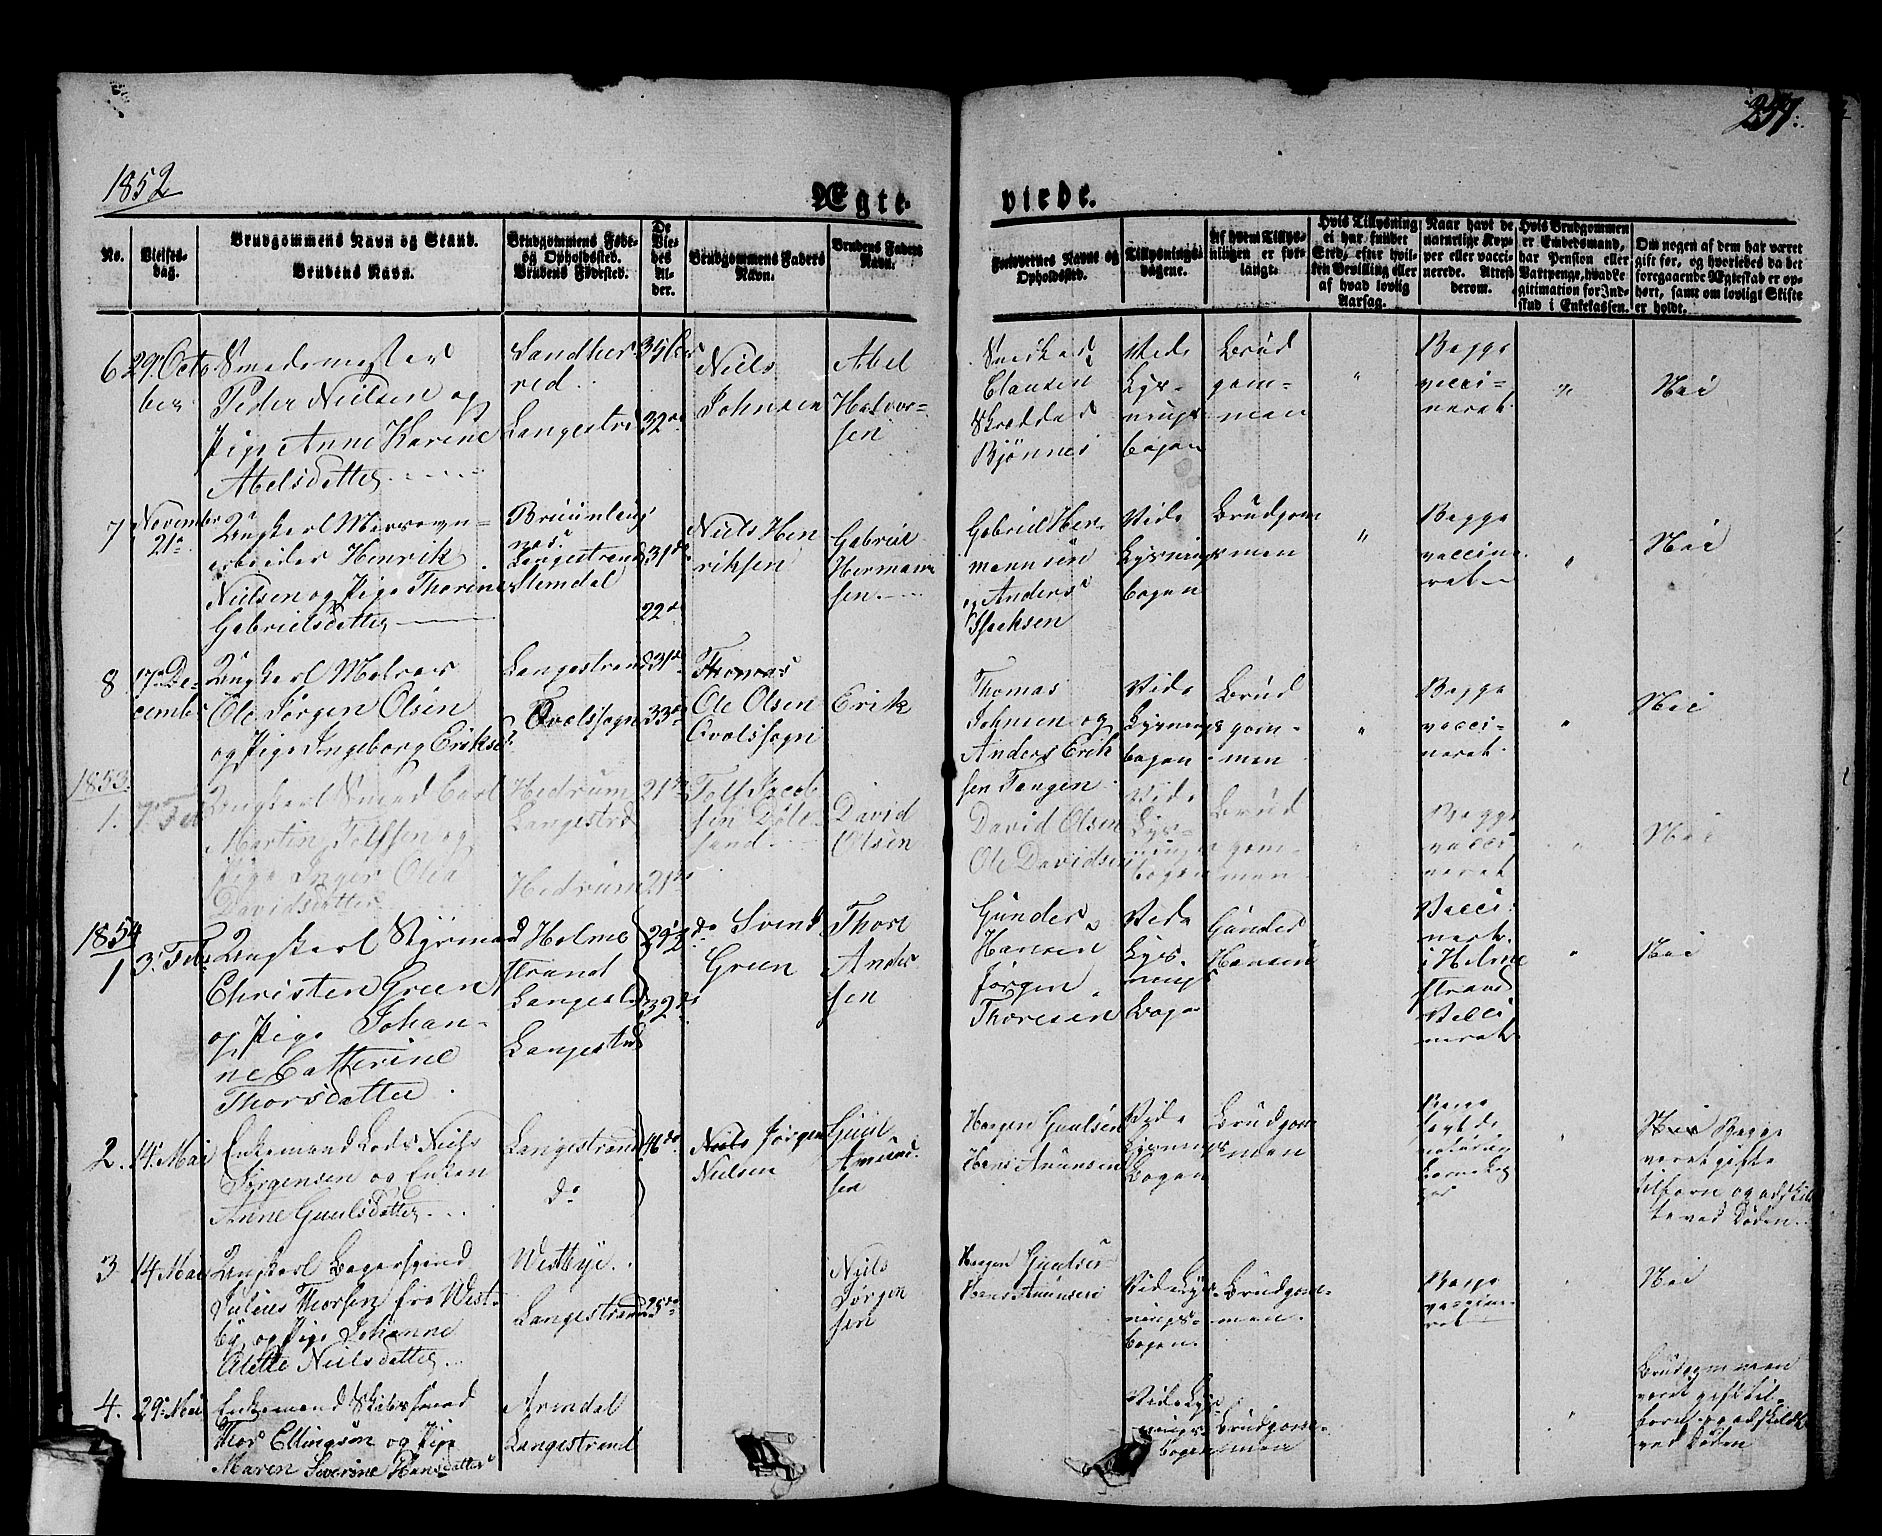 257.
1852
Ægte-
viede.
No.
Vielses-
dag.
Brudgommens Navn og Stand.
Brudens Navn.
Brudgommens Føde-
og Opholdssted.
Brudens Fødested.
De
Vie-
des
Al-
der.
Brudgommens Faders
Navn.
Brudens Faders
Navn.
Forlovernes Navne og
Opholdssted.
Tillysnings-
dagene.
Af hvem Tillys-
ningen er for-
langt.
Hvis Tillysning
ei har fundet
Sted, efter hvil-
ken Bevilling eller
af hvad lovlig
Aarsag.
Naar havt de
naturlige Kop-
per eller vacci-
nerede. Attest
derom.
Hvis Brudgommen
er Embedsmand,
har Pension eller
Vartpenge, hvad Le-
gitimation for Ind-
skud i Enkekassen.
Om nogen af dem har været
gift før, og hvorledes da det
foregaaende Ægteskab er op-
hørt, samt om lovligt Skifte
er holdt.
6 29 Octo
ber
Smedemester
Peder Nielsen og
Pige Anne Karine
Abelsdatter
Sandher
red
Langestrd
35
32
Niels
Johnsen
Abel
Halvor-
sen
Clausen
Bjønnes
Vide
Lys-
nings
bogen
Brud
gom-
men
"
Begge
vacci-
neret
"
Nei
7 November
21
Ungkarl
arbeider Henrik
Nielsen og Pige Thorine
Gabrielsdatter
Langestrand
Slemdal
31
22
Niels Hen
riksen
Gabriel
Herman
sen
Gabriel Her-
mannsen
og Anders
Isacksen
Vide
Lysnings
bogen
Brudgom
men
"
Begge
vaccine
ret
"
Nei
8 17 De-
cember
Ungkarl
Ole Jørgen Olsen
og Pige Ingeborg Eriksd
Langestrand
31
33
Thomas
Ole Olsen
Erik
Thomas
Johnsen og
Anders Erik
sen Tangen
Vide
Lysnings
bogen
Brud
gom-
men
"
Begge
vacci-
neret
"
Nei
1853
1. 7 Feb
Ungkarl Smed Carl
Martin Tolfsen og
Pige Inger Olea
Davidsdatter
Hedrum
Langestrd
Hedrum
21
21
Tolf Jacob
sen
David
Olsen
David Olsen
Ole Davidsen
Vide
Lys-
nings
bogen
Brud
gom-
men
"
Begge
vacci
neret
"
Nei
1854
1 3 Feb
Ungkarl Styrmand
Christen Green
og Pige Johan-
ne Catterine
Thorsdatter
Holme
strand
Langestrd
Langestrd
29½
32
Svend
Green
Thore
Anders
sen
Gunder
Hansen
Jørgen
Thoresen
Vide
Lys-
nings
Boge
Gunder
Hansen
"
Vacci-
neret
i Holme
strand
Vacci
neret
"
Nei
2. 14 Mai
Enkemand Lods Niels
Jørgensen og Enken
Anne Guulsdatter
Langestrand
do
46
Niels Jørgen
Nielsen
Guul
Amund
sen
Haagen Guulsen
Hans Amundsen
Vide
Lysnings
Bogen
Brudgom
men
Begge
havt de
naturlige
"
Nei Begge
været gifte
tilforn og adskil
te ved Døden
3 14 Mai
Ungkarl Bagersvend
Julius Thorsen fra West-
by og Pige Johanne
Alette Nielsdatter
Westbye
Langestrand
25
Niels
Jørgen
sen
Haagen Guulsen
Hans Amundsen
Vide Lys-
nings-
bogen
Brudgom-
men
Begge
vaccine-
ret
"
Nei
4. 29 Mai
Enkemand
Thor Ellingsen og Pige
Maren Severine Hansdatter
Arendal
Langestrand
Vide Lys-
nings
bogen
Brudgom-
men
"
Brudgommen
været gift til-
forn og adskildt
ved Døden